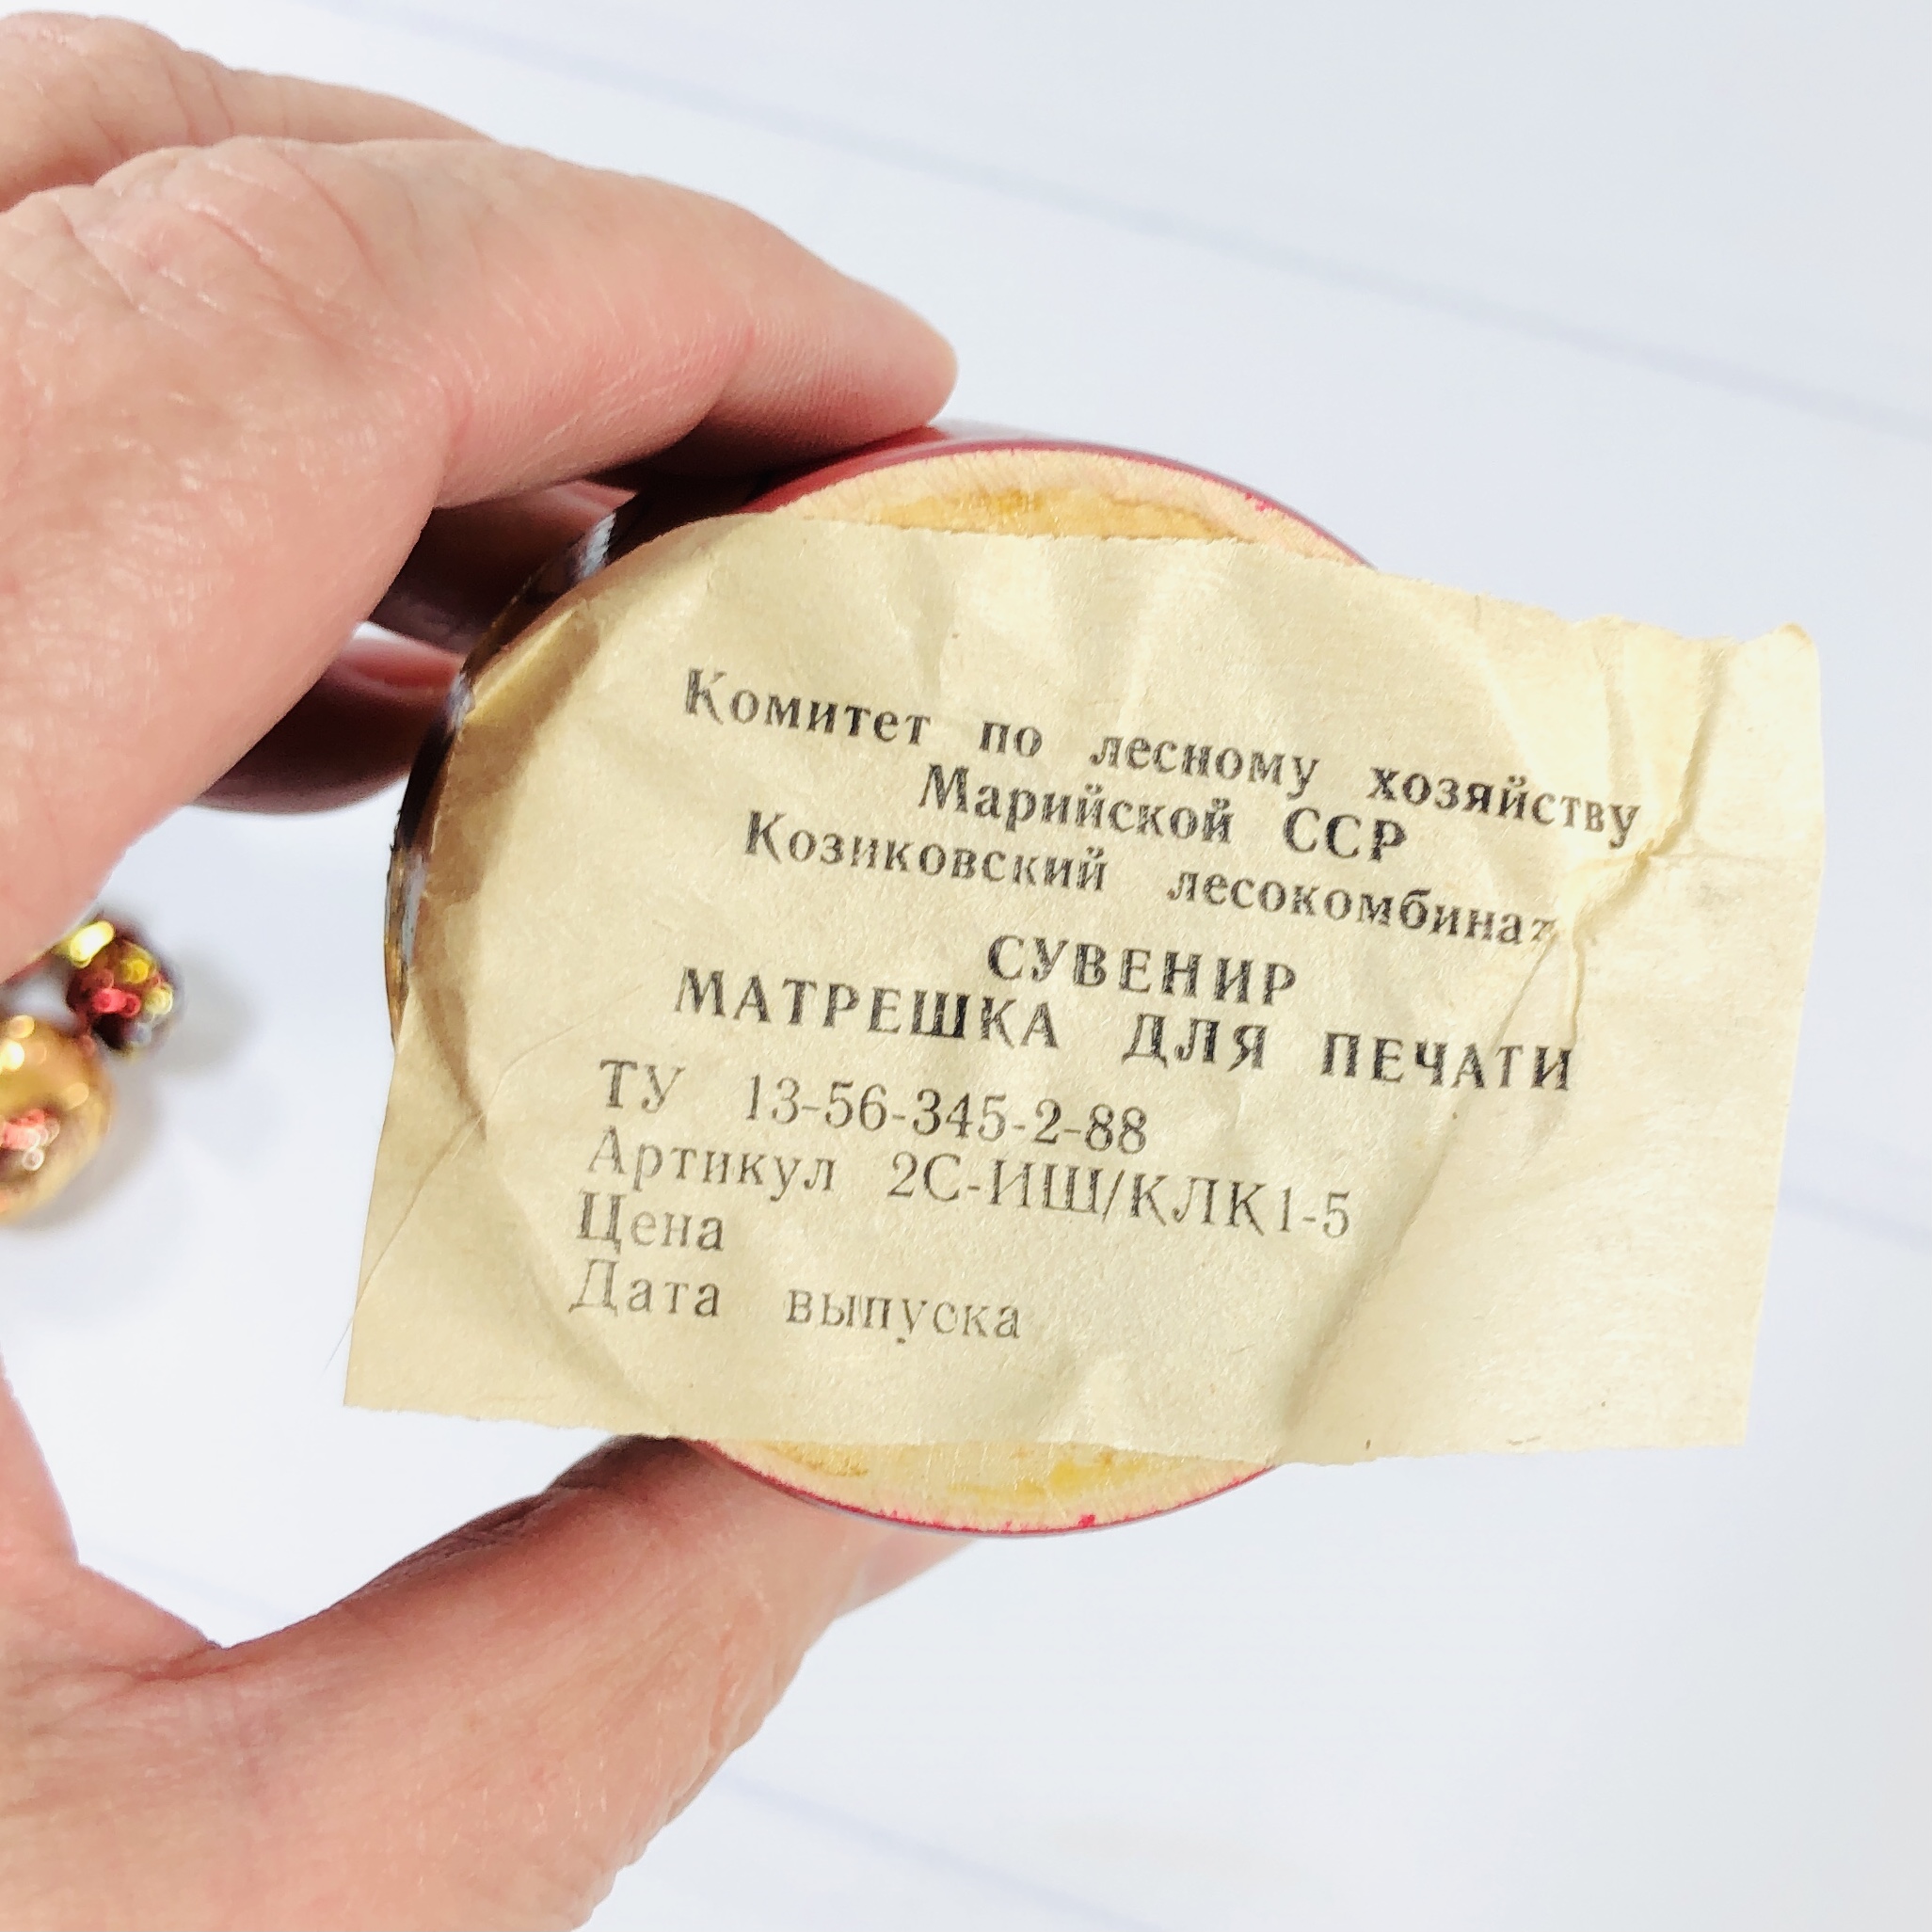 Комитет по лесному хозяйству
Марийской ССР
Козиковский лесокомбинат
СУВЕНИР
МАТРЕШКА ДЛЯ ПЕЧАТИ
ТУ 13-56-345-2-88
Артикул 2С-ИШ/КЛК1-5
Цена
Дата выпуска